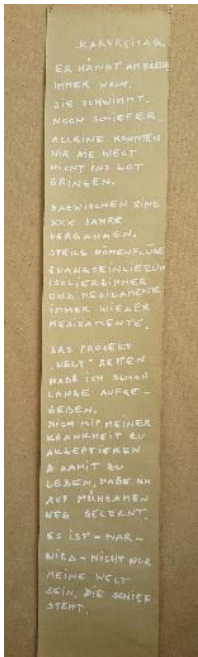 KARFREITAG.
ER HÄNGT AM KREUZ
IMMER NOCH.
SIE SCHWIMMT.
NOCH SCHIEFER.
ALLEINE KONNTEN
WIR DIE WELT
NICHT INS LOT
BRINGEN.
DAZWISCHEN SIND
XXX JAHRE
VERGANGEN.
STEILE HÖHENFLÜGE
ZWANGSEINLIEFERUN
ISOLIERZIMMER
UND MEDIKAMENTE
IMMER WIEDER
MEDIKAMENTE.
DAS PROJEKT
"WELT" RETTEN
HABE ICH SCHON
LANGE AUFGE-
GEBEN.
MICH MIT MEINER
KRANKHEIT ZU
AKZEPTIEREN
& DAMIT ZU
LEBEN, HABE ICH
AUF MÜHSAMEN
WEG GELERNT.
ES IST - WAR -
WIRD - NICHT NUR
MEINE WELT
SEIN, DIE SCHIEF
STEHT.